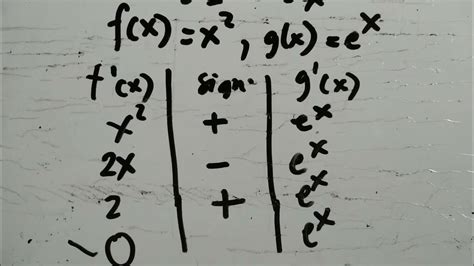 f(x) = x², g(x) = eˣ
f'(x) | sign | g'(x)
x² | + | eˣ
2x | - | eˣ
2 | + | eˣ
~0 | | eˣ